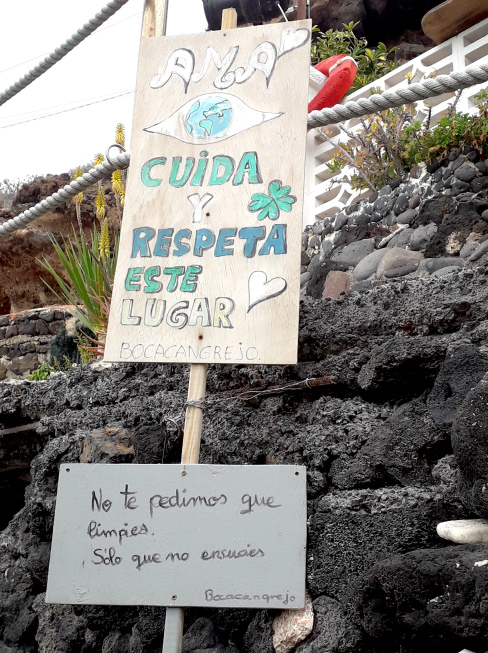 AMA
CUIDA
Y
RESPETA
ESTE
LUGAR
BOCACANGREJO.
No te pedimos que
limpies.
Sólo que no ensucies
Bocacangrejo